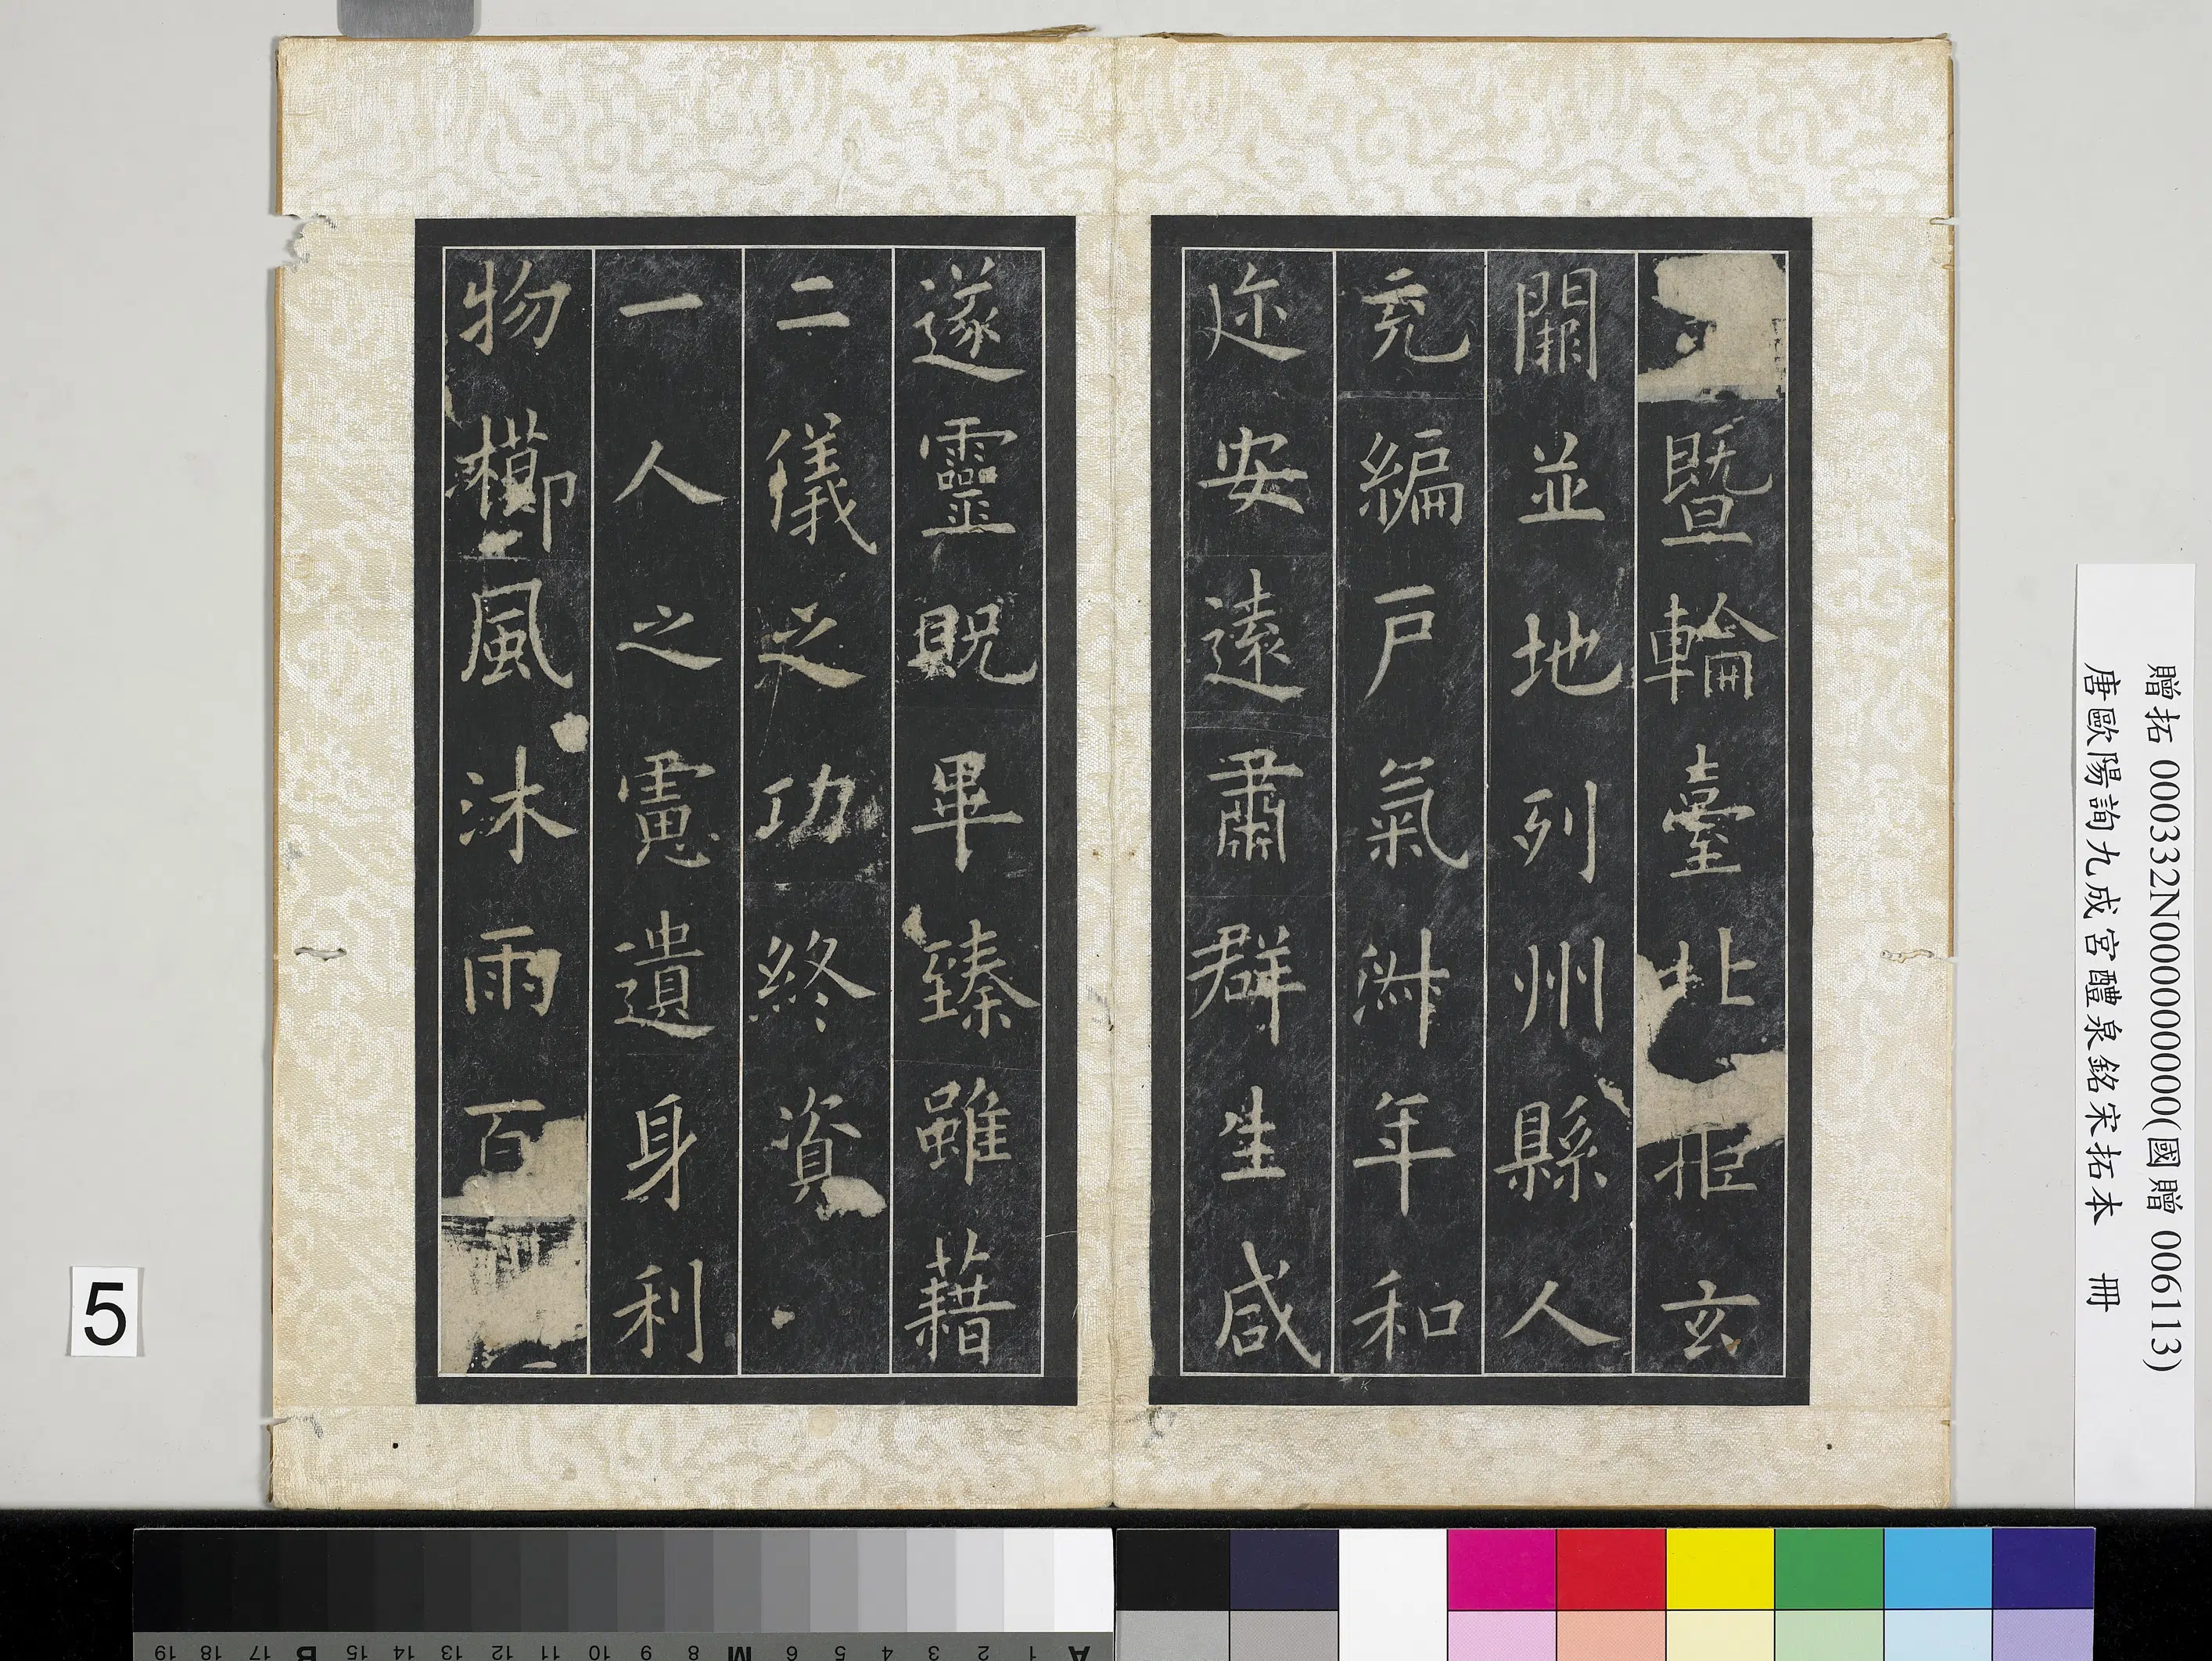 暨輪臺北拒玄
闕並地列州縣人
充編戶氣淑年和
迩安遠肅群生咸
遂靈貺畢臻雖藉
二儀之功終資
一人之慮遺身利
物櫛風沐雨百
贈拓 000332N000000000(國贈 006113)
唐歐陽詢九成宮醴泉銘宋拓本 冊
5
A 1 2 3 4 5 6 M 8 9 10 11 12 13 14 15 B 17 18 19